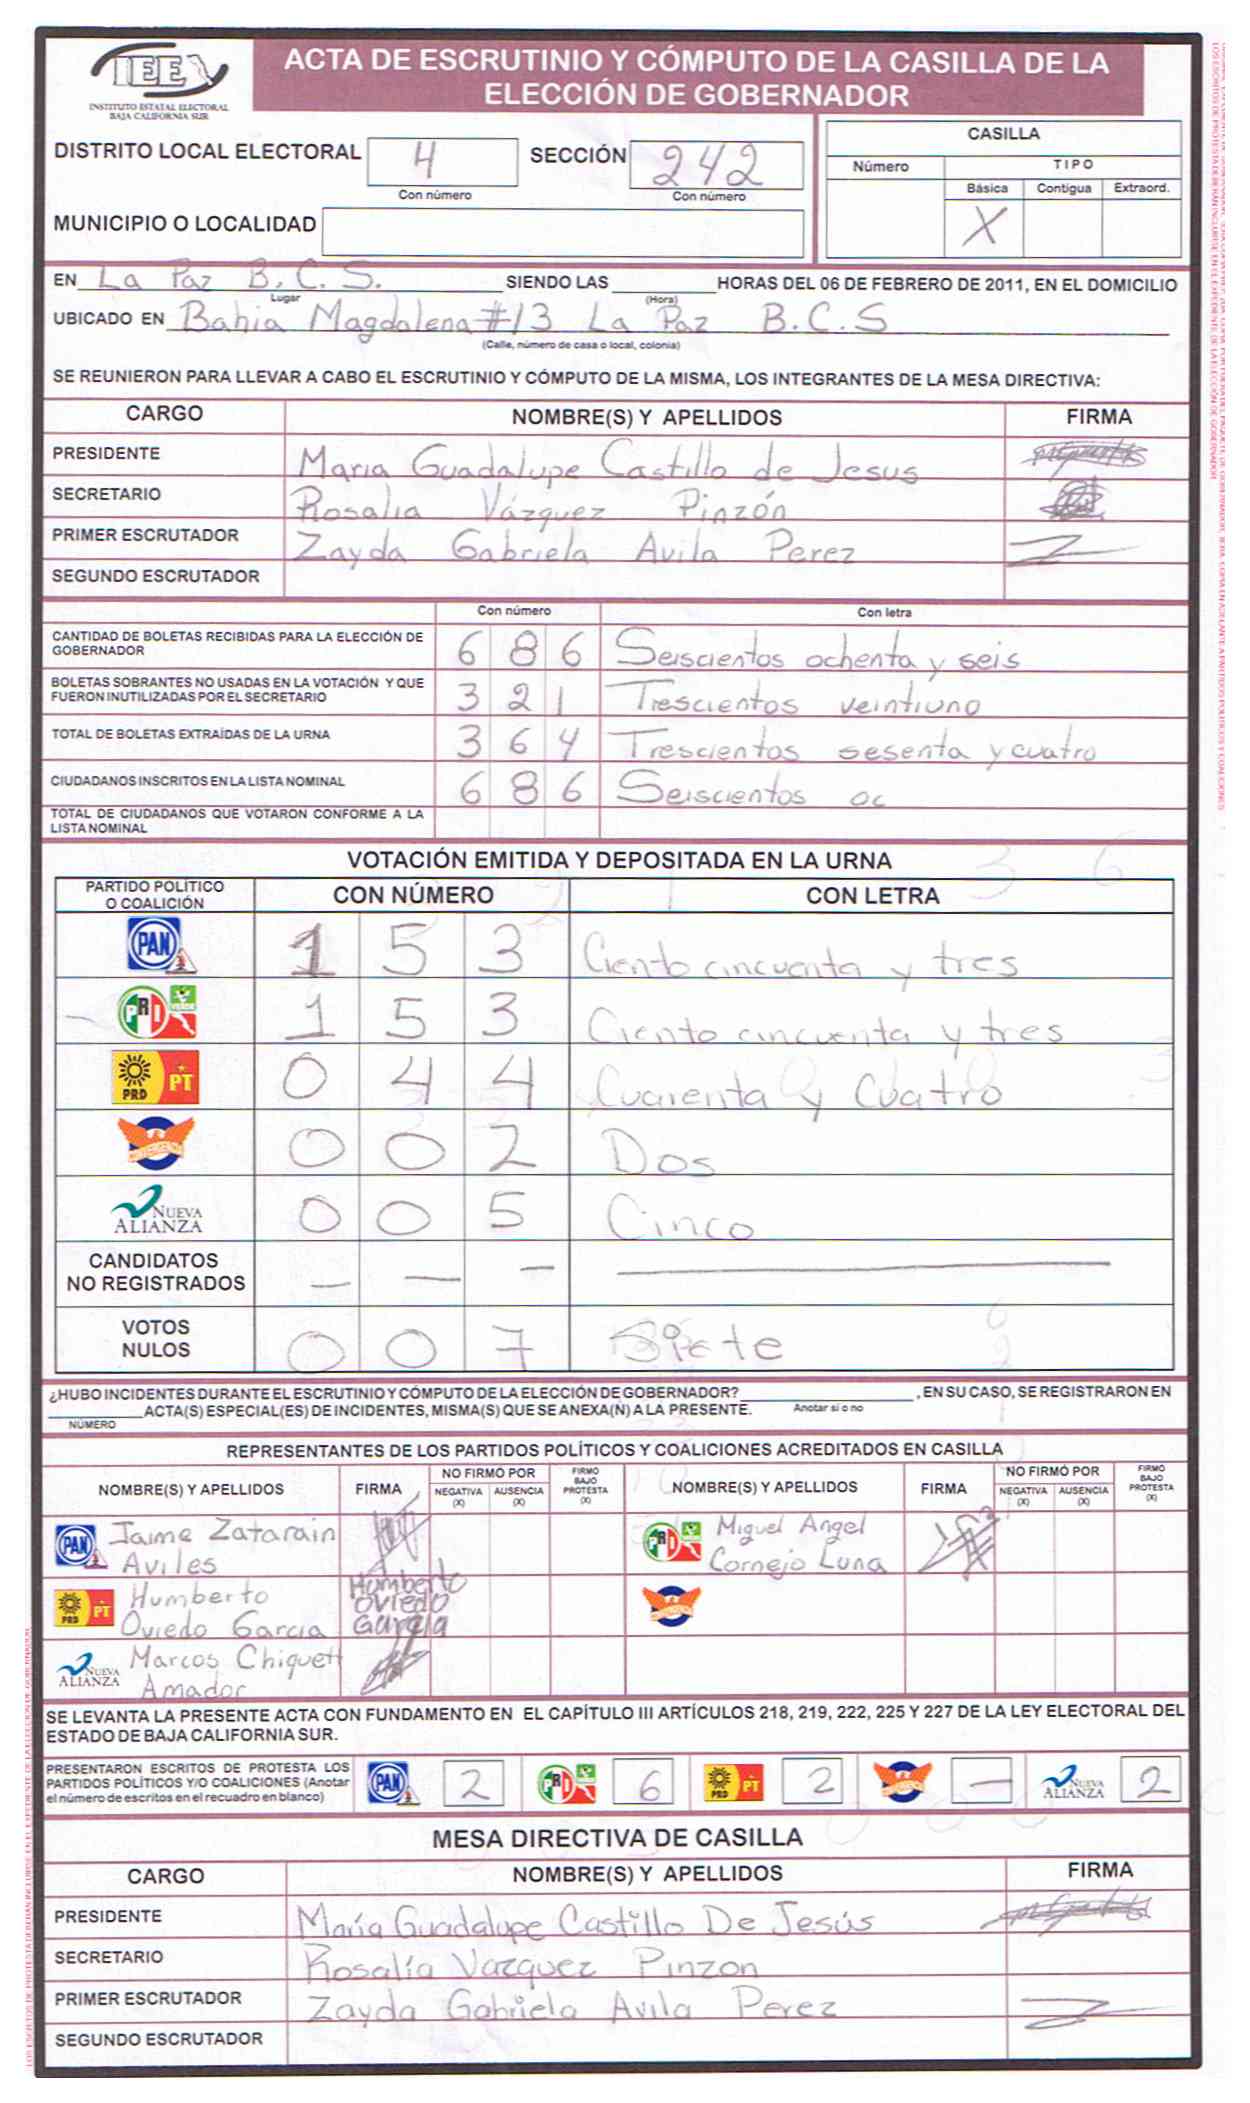 IEE
INSTITUTO ESTATAL ELECTORAL
BAJA CALIFORNIA SUR
ACTA DE ESCRUTINIO Y CÓMPUTO DE LA CASILLA DE LA
ELECCIÓN DE GOBERNADOR
DISTRITO LOCAL ELECTORAL 4 SECCIÓN 242
Con número Con número
MUNICIPIO O LOCALIDAD
CASILLA
Número TIPO
Básica Contigua Extraord.
X
EN La Paz B.C.S. SIENDO LAS HORAS DEL 06 DE FEBRERO DE 2011, EN EL DOMICILIO
Lugar (Hora)
UBICADO EN Bahia Magdalena #13 La Paz B.C.S
(Calle, número de casa o local, colonia)
SE REUNIERON PARA LLEVAR A CABO EL ESCRUTINIO Y CÓMPUTO DE LA MISMA, LOS INTEGRANTES DE LA MESA DIRECTIVA:
CARGO NOMBRE(S) Y APELLIDOS FIRMA
PRESIDENTE Maria Guadalupe Castillo de Jesus
SECRETARIO Rosalia Vázquez Pinzón
PRIMER ESCRUTADOR Zayda Gabriela Avila Perez
SEGUNDO ESCRUTADOR
Con número Con letra
CANTIDAD DE BOLETAS RECIBIDAS PARA LA ELECCIÓN DE
GOBERNADOR 6 8 6 Seiscientos ochenta y seis
BOLETAS SOBRANTES NO USADAS EN LA VOTACIÓN Y QUE
FUERON INUTILIZADAS POR EL SECRETARIO 3 2 1 Trescientos veintiuno
TOTAL DE BOLETAS EXTRAÍDAS DE LA URNA 3 6 4 Trescientos sesenta y cuatro
CIUDADANOS INSCRITOS EN LA LISTA NOMINAL 6 8 6 Seiscientos oc
TOTAL DE CIUDADANOS QUE VOTARON CONFORME A LA
LISTA NOMINAL
VOTACIÓN EMITIDA Y DEPOSITADA EN LA URNA
PARTIDO POLÍTICO
O COALICIÓN CON NÚMERO CON LETRA
PAN 1 5 3 Ciento cincuenta y tres
PRI VERDE 1 5 3 Ciento cincuenta y tres
PRD PT 0 4 4 Cuarenta y Cuatro
CONVERGENCIA 0 0 2 Dos
NUEVA ALIANZA 0 0 5 Cinco
CANDIDATOS
NO REGISTRADOS — — —
VOTOS
NULOS 0 0 7 Siete
¿HUBO INCIDENTES DURANTE EL ESCRUTINIO Y CÓMPUTO DE LA ELECCIÓN DE GOBERNADOR? , EN SU CASO, SE REGISTRARON EN
ACTA(S) ESPECIAL(ES) DE INCIDENTES, MISMA(S) QUE SE ANEXA(N) A LA PRESENTE. Anotar si o no
NÚMERO
REPRESENTANTES DE LOS PARTIDOS POLÍTICOS Y COALICIONES ACREDITADOS EN CASILLA
NOMBRE(S) Y APELLIDOS FIRMA NO FIRMÓ POR NEGATIVA (X) AUSENCIA (X) FIRMÓ BAJO PROTESTA (X) NOMBRE(S) Y APELLIDOS FIRMA NO FIRMÓ POR NEGATIVA (X) AUSENCIA (X) FIRMÓ BAJO PROTESTA (X)
PAN Jaime Zatarain
Aviles
PRI Miguel Angel
Cornejo Luna
PRD PT Humberto
Oviedo Garcia
Humberto
Oviedo
Garcia
NUEVA ALIANZA Marcos Chiquett
Amador
SE LEVANTA LA PRESENTE ACTA CON FUNDAMENTO EN EL CAPÍTULO III ARTÍCULOS 218, 219, 222, 225 Y 227 DE LA LEY ELECTORAL DEL
ESTADO DE BAJA CALIFORNIA SUR.
PRESENTARON ESCRITOS DE PROTESTA LOS
PARTIDOS POLÍTICOS Y/O COALICIONES (Anotar
el número de escritos en el recuadro en blanco)
PAN 2 PRI 6 PRD PT 2 — NUEVA ALIANZA 2
MESA DIRECTIVA DE CASILLA
CARGO NOMBRE(S) Y APELLIDOS FIRMA
PRESIDENTE María Guadalupe Castillo De Jesús
SECRETARIO Rosalía Vazquez Pinzon
PRIMER ESCRUTADOR Zayda Gabriela Avila Perez
SEGUNDO ESCRUTADOR